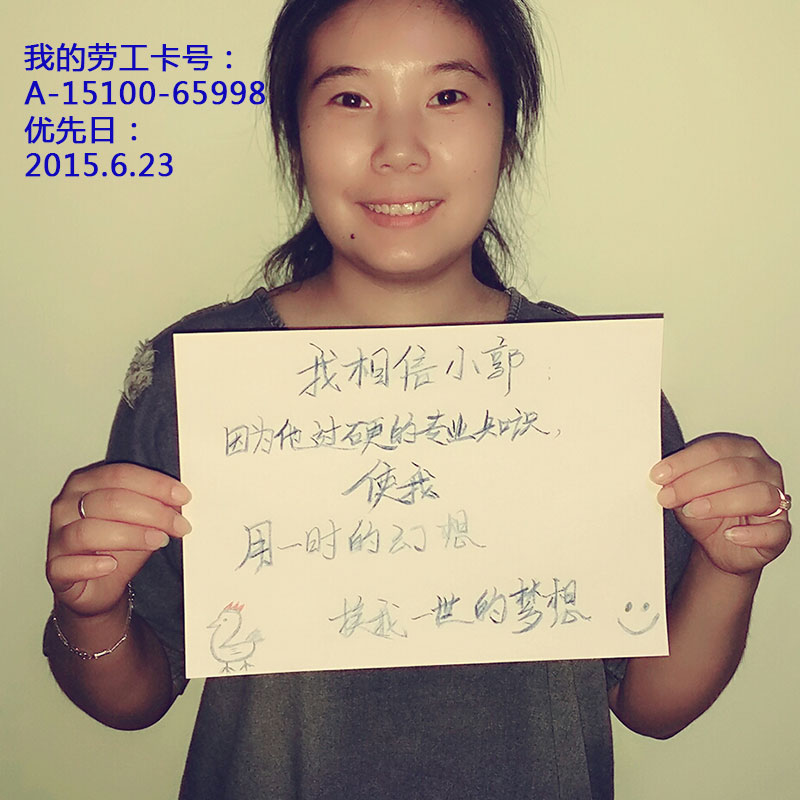 我的劳工卡号：
A-15100-65998
优先日：
2015.6.23
我相信小郭：
因为他过硬的专业知识，
使我
用一时的幻想
换我一世的梦想